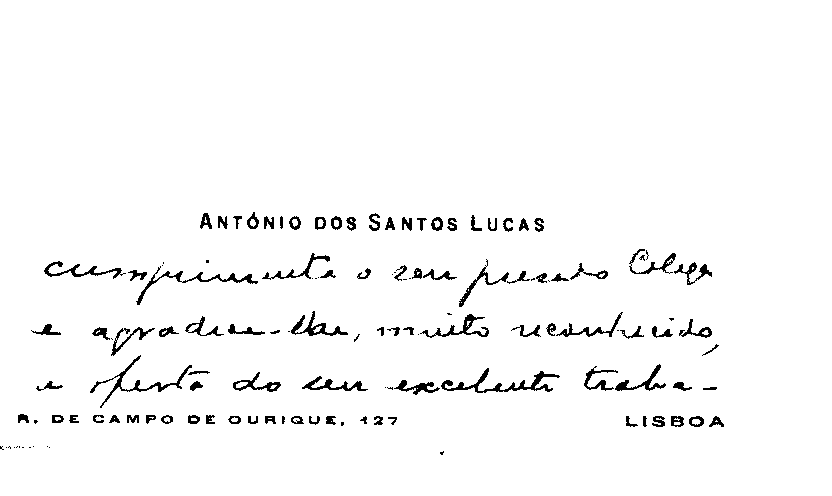 ANTÓNIO DOS SANTOS LUCAS
cumprimenta o seu presado Colega
e agradece-lhe, muito reconhecido,
a oferta do seu excelente traba-
R. DE CAMPO DE OURIQUE, 127 LISBOA